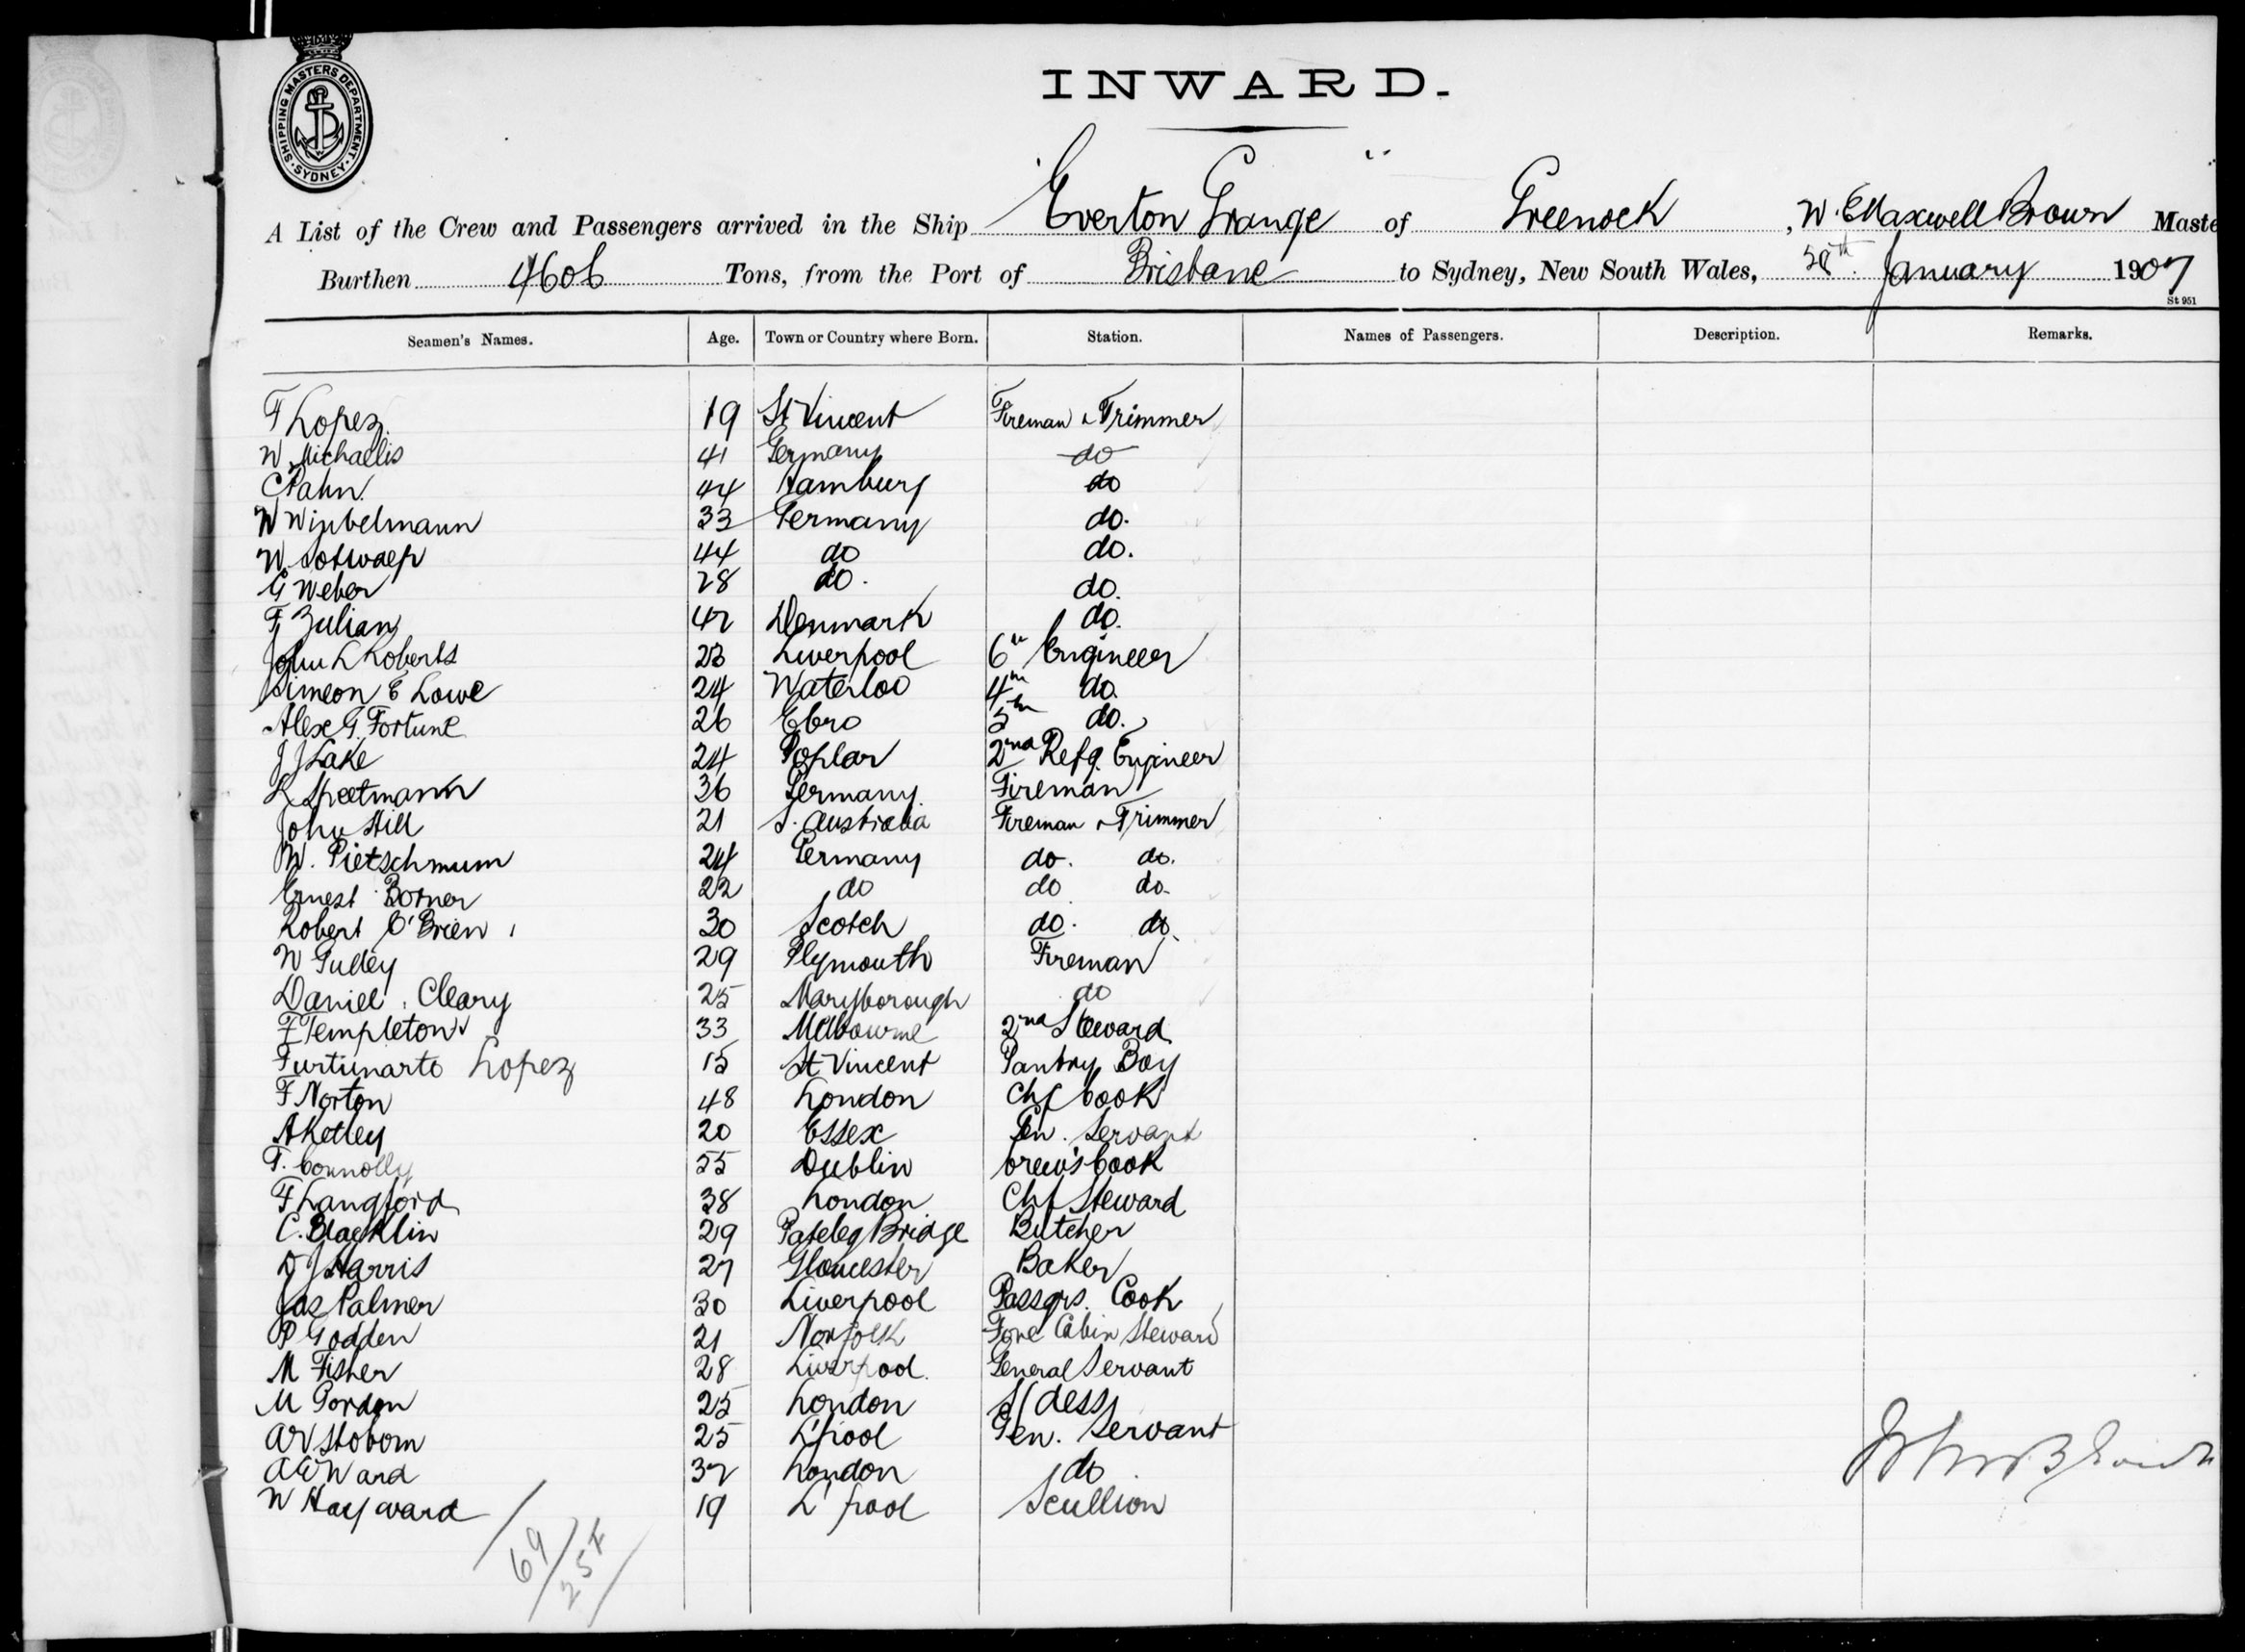 SHIPPING MASTERS DEPARTMENT · SYDNEY ·
INWARD.
A List of the Crew and Passengers arrived in the Ship "Everton Grange" of Greenock, W. E Maxwell Brown Maste
Burthen 4606 Tons, from the Port of Brisbane to Sydney, New South Wales, January 1907
St 951
Seamen's Names. Age. Town or Country where Born. Station. Names of Passengers. Description. Remarks.
F Lopez. 19 St Vincent Fireman & Trimmer
W Michaelis 41 Germany do
C Pahn. 44 Hamburg do
W 33 Germany do.
W. 44 do do.
G Weber 28 do. do.
F Zulian 42 Denmark do.
John L Roberts 23 Liverpool 6th Engineer
Simeon E Lowe 24 Waterloo 4th do.
Alex G. Fortune 26 Ebro 5th do.
J J Lake 24 Poplar 2nd Refg. Engineer
L Speetmann 36 Germany. Fireman
John Hill 21 S. Australia Fireman & Trimmer
W. Pietschmum 24 Germany do. do.
Ernest Borner 22 do do do.
Robert O'Brien 30 Scotch do. do.
W Pulley 29 Plymouth Fireman
Daniel Cleary 25 Maryborough do
F Templeton 33 Melbourne 2nd Steward
Furtunarto Lopez 15 St Vincent Pantry Boy
F Norton 48 London Chf Cook
A Ketley 20 Essex Gen. Servant
T. Connolly 55 Dublin Crew's Cook
F Langford 38 London Chf Steward
C. Blacklin 29 Pateley Bridge Butcher
D J Harris 27 Gloucester Baker
Jas Palmer 30 Liverpool Passgrs. Cook
P Godden 21 Norfolk Fore Cabin Steward
M Fisher 28 Liverpool. General Servant
M Gordon 25 London S/dess
25 L'pool Gen. Servant
A E Ward 32 London do
W Hayward 19 L'pool Scullion
69/25